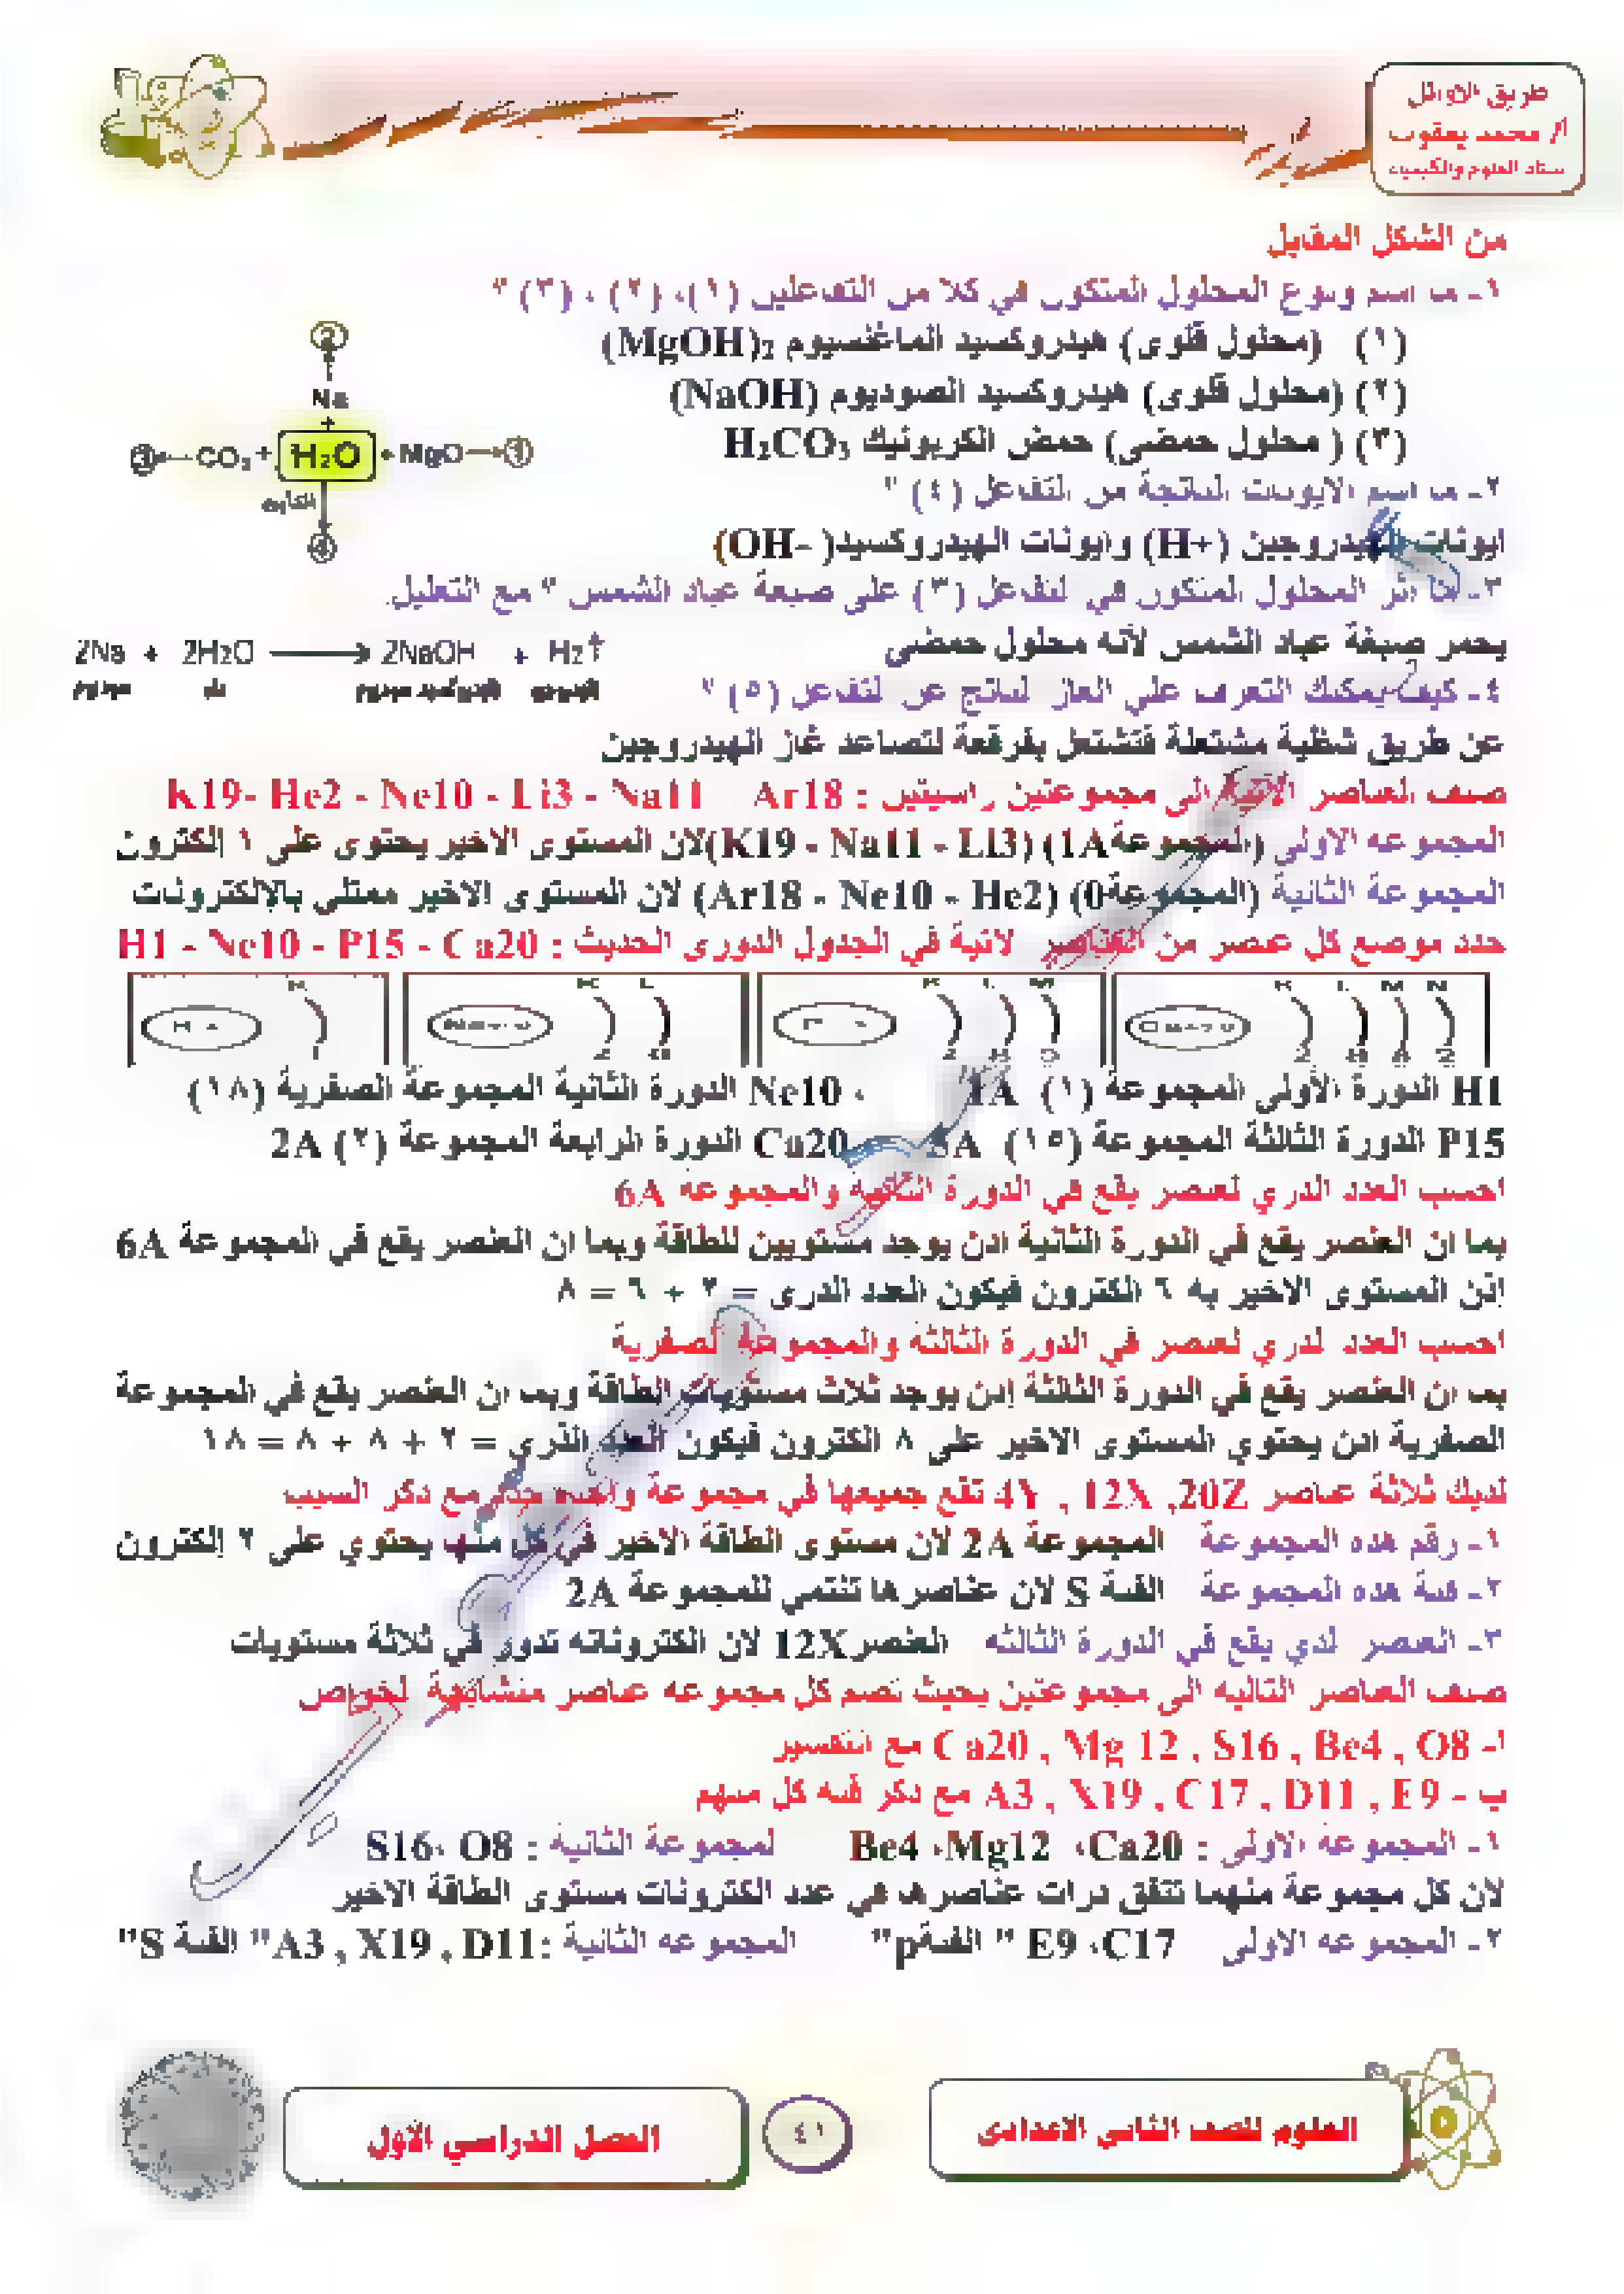 طريق الاوائل
أ/ محمد يعقوب
ستاذ العلوم والكيمياء
من الشكل المقابل
١- ما اسم ونوع المحلول المتكون في كلا من التفاعلين (١)، (٢) ، (٣) ؟
(١) (محلول قلوى) هيدروكسيد الماغنسيوم (MgOH)2
(٢) (محلول قلوى) هيدروكسيد الصوديوم (NaOH)
(٣) ( محلول حمضى) حمض الكربونيك H2CO3
② Na + H2O
③ CO2 + H2O + MgO ①
④
٢- ما اسم الايونات الناتجة من التفاعل (٤) ؟
ايونات الهيدروجين (H+) وايونات الهيدروكسيد( -OH)
٣- ما أثر المحلول المتكون في التفاعل (٣) على صبغة عباد الشمس ؟ مع التعليل.
يحمر صبغة عباد الشمس لأنه محلول حمضى
2Na + 2H2O → 2NaOH + H2↑
صوديوم ماء هيدروكسيد صوديوم هيدروجين
٤- كيف يمكنك التعرف على الغاز الناتج عن التفاعل (٥) ؟
عن طريق شظية مشتعلة فتشتعل بفرقعة لتصاعد غاز الهيدروجين
صنف العناصر الاتية الى مجموعتين راسيتين : K19- He2 - Ne10 - Li3 - Na11 Ar18
المجموعه الاولى (المجموعة1A) (K19 - Na11 - Li3)لان المستوى الاخير يحتوى على ١ إلكترون
المجموعة الثانية (المجموعة0) (Ar18 - Ne10 - He2) لان المستوى الاخير ممتلى بالإلكترونات
حدد موضع كل عنصر من العناصر الاتية في الجدول الدورى الحديث : H1 - Ne10 - P15 - Ca20
H1 الدورة الأولى المجموعة (١) 1A ، Ne10 الدورة الثانية المجموعة الصفرية (١٨)
P15 الدورة الثالثة المجموعة (١٥) 5A Ca20 الدورة الرابعة المجموعة (٢) 2A
احسب العدد الذري لعنصر يقع في الدورة الثانية والمجموعة 6A
بما ان العنصر يقع في الدورة الثانية اذن يوجد مستويين للطاقة وبما ان العنصر يقع في المجموعة 6A
إذن المستوى الاخير به ٦ الكترون فيكون العدد الذرى = ٢ + ٦ = ٨
احسب العدد الذري لعنصر في الدورة الثالثه والمجموعة الصفرية
بما ان العنصر يقع في الدورة الثالثة إذن يوجد ثلاث مستويات الطاقة وبما ان العنصر يقع في المجموعة
الصفرية اذن يحتوي المستوى الاخير على ٨ الكترون فيكون العدد الذرى = ٢ + ٨ + ٨ = ١٨
لديك ثلاثة عناصر 4Y , 12X ,20Z تقع جميعها في مجموعة واحدة حدد مع ذكر السبب
١- رقم هذه المجموعة المجموعة 2A لان مستوى الطاقة الاخير في كل منها يحتوي على ٢ إلكترون
٢- فئة هذه المجموعة الفئة S لان عناصرها تنتمي للمجموعة 2A
٣- العنصر الذي يقع في الدورة الثالثه العنصر12X لان الكتروناته تدور في ثلاثة مستويات
صنف العناصر التاليه الى مجموعتين بحيث تضم كل مجموعه عناصر متشابهة الخواص
أ- Ca20 , Mg 12 , S16 , Be4 , O8 مع التفسير
ب - A3 , X19 , C17 , D11 , E9 مع ذكر فئه كل منهم
١- المجموعة الاولى : Be4 ،Mg12 ،Ca20 المجموعة الثانية : S16، O8
لان كل مجموعة منهما تتفق ذرات عناصرها في عدد الكترونات مستوى الطاقة الاخير
٢- المجموعه الاولى E9 ،C17 " الفئةp" المجموعه الثانية :A3 , X19 , D11" الفئة S"
العلوم للصف الثانى الاعدادى
٤١
الفصل الدراسي الأول